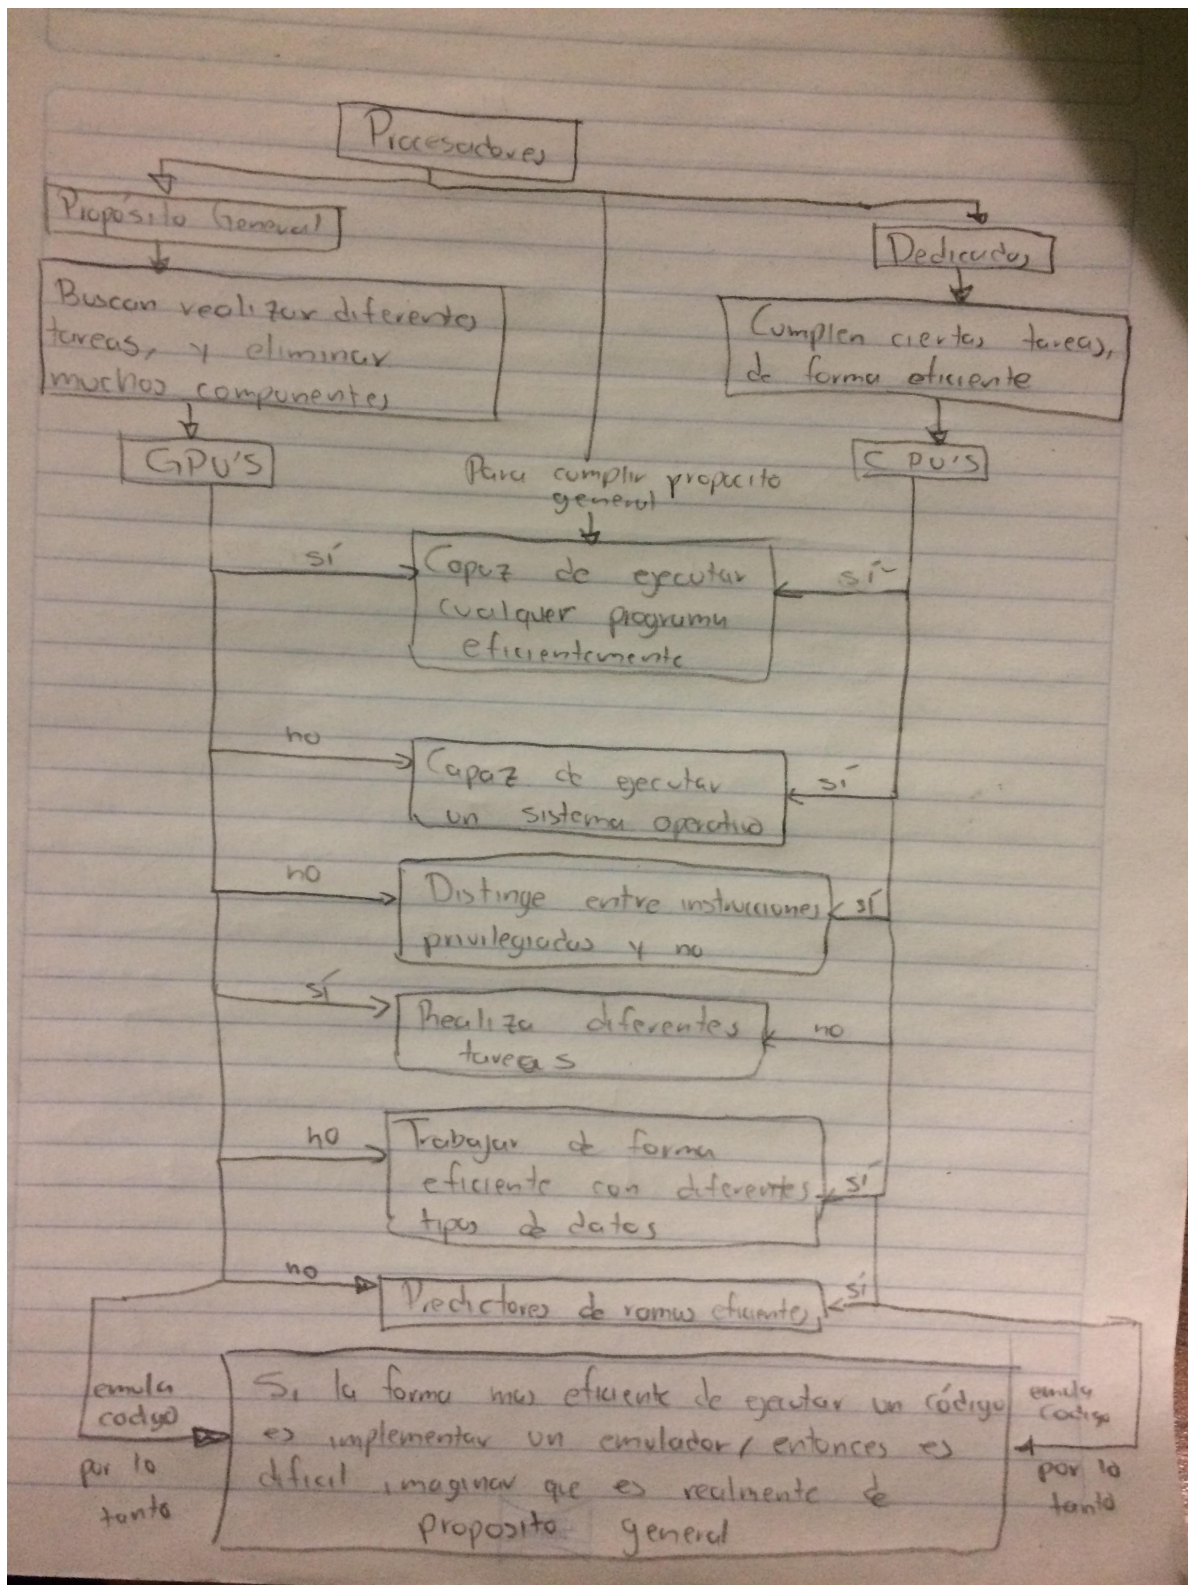 Procesadores
Propósito General
Dedicados
Buscan realizar diferentes
tareas, y eliminar
muchos componentes
Cumplen ciertas tareas,
de forma eficiente
GPU'S
Para cumplir propocito
general
CPU'S
sí
Capaz de ejecutar
cualquer programa
eficientemente
sí
no
Capaz de ejecutar
un sistema operativo
sí
no
Distinge entre instrucciones
privilegiadas y no
sí
sí
Realiza diferentes
tareas
no
no
Trabajar de forma
eficiente con diferentes
tipos de datos
sí
no
Predictores de ramas eficientes
sí
emula
codigo
por lo
tanto
Si la forma mas eficiente de ejecutar un código
es implementar un emulador, entonces es
dificil imaginar que es realmente de
proposito general
emula
codigo
por lo
tanto